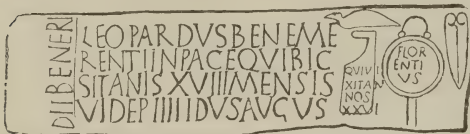 DIIBENERI
LEOPARDVSBENEME
RENTIINPACEQVIBIC
SITANISXVIIIMENSIS
VIDEPIIIIIDVSAVGVS
QVIVI
XITA
NOS
XXVI
FLOR
ENTI
VS